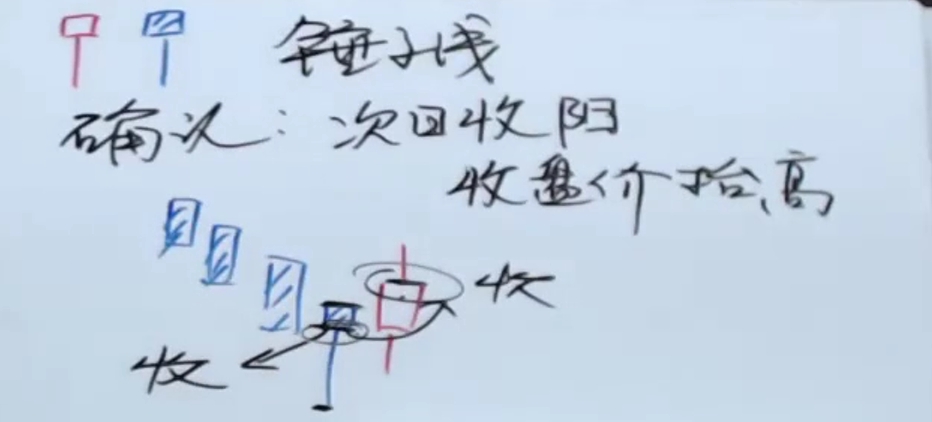 锤子线
确认：次日收阳
收盘价抬高
收
收